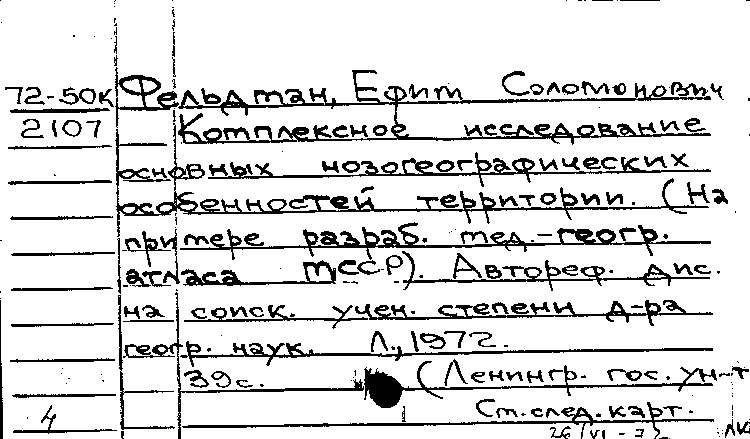 72-50к Фельдман, Ефим Соломонович
2107 Комплексное исследование
основных нозогеографических
особенностей территории. (На
примере разраб. мед.-геогр.
атласа МССР). Автореф. дис.
на соиск. учен. степени д-ра
геогр. наук. Л., 1972.
39с. (Ленингр. гос. ун-т
4 Ст. след. карт.
26/VI-72